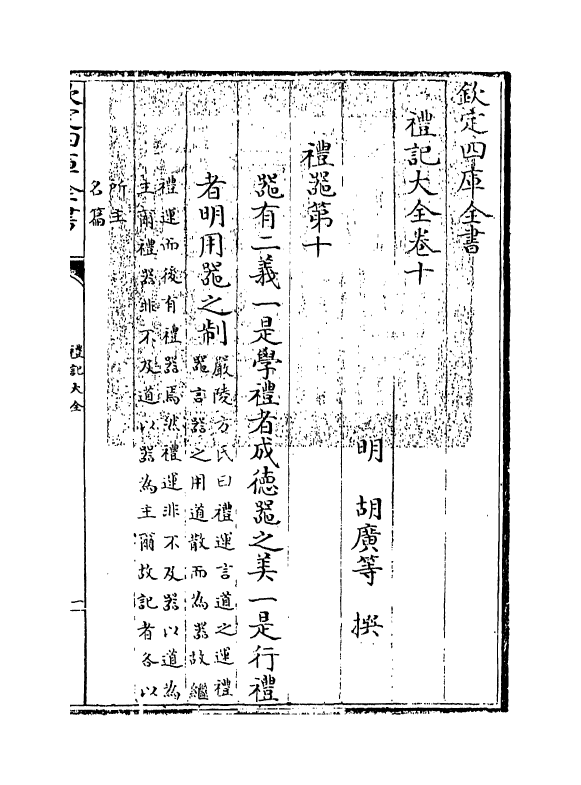 欽定四庫全書
禮記大全卷十
明 胡廣等 撰
禮器第十
器有二義一是學禮者成德器之美一是行禮
者明用器之制
嚴陵方氏曰禮運言道之運禮
器言器之用道散而為器故繼
禮運而後有禮器焉然禮運非不及器以道為
主爾禮器非不及道以器為主爾故記者各以
所主
名篇
欽定四庫全書
禮記大全
一